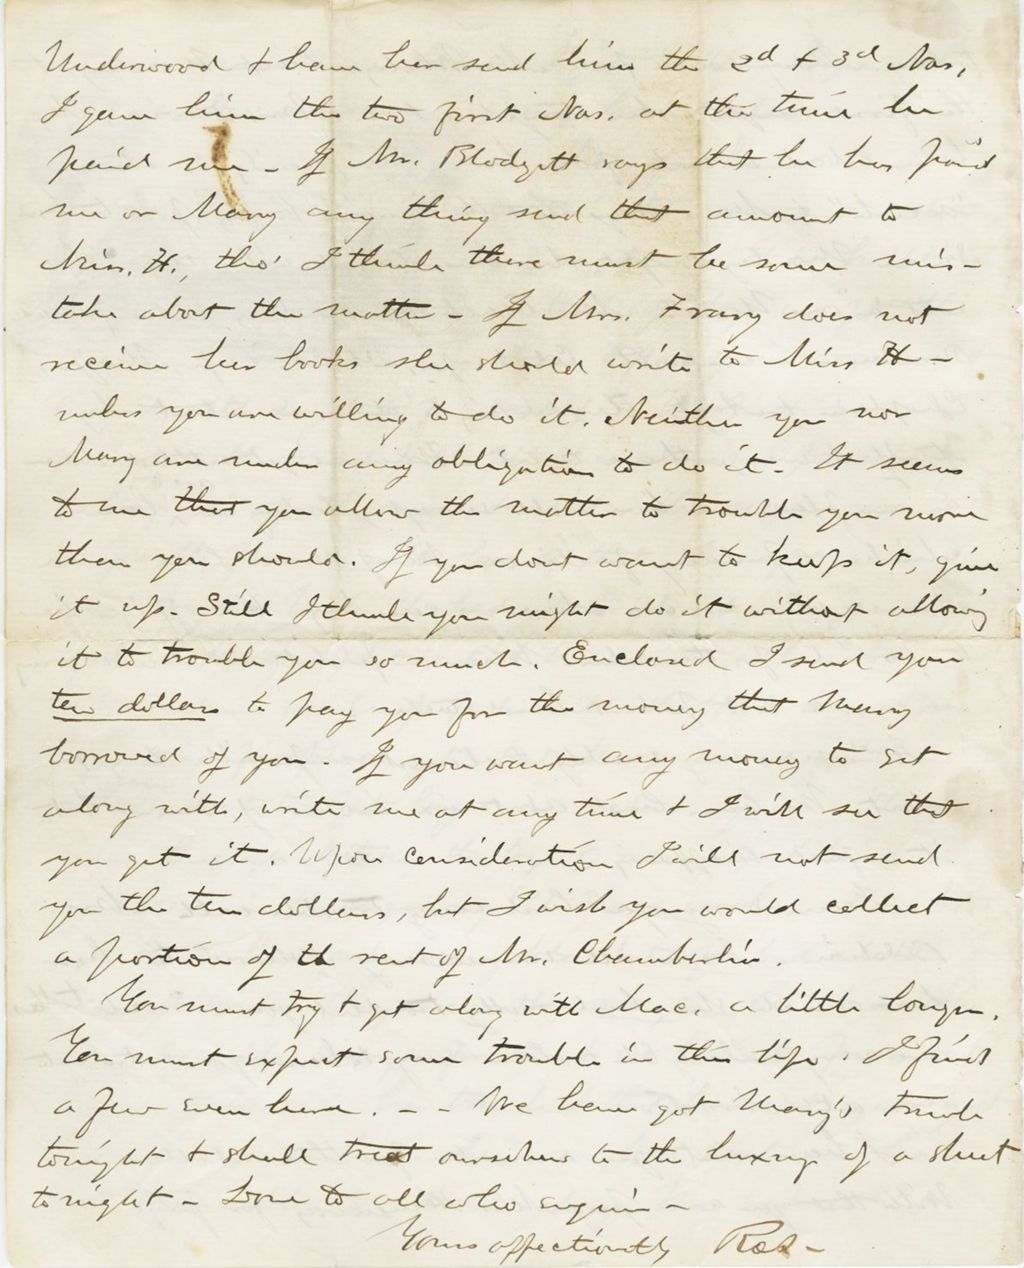 Underwood & have her send him the 2d & 3d Nos,
I gave him the two first Nos. at the time he
paid me - If Mr. Blodgett says that he has paid
me or Mary any thing send that amount to
Miss. H., tho' I think there must be some mis-
take about the matter - If Mrs. Frary does not
receive her books she should write to Miss H -
unless you are willing to do it. Neither you nor
Mary are under any obligation to do it - It seems
to me that you allow the matter to trouble you more
than you should. If you dont want to keep it, give
it up. Still I think you might do it without allowing
it to trouble you so much. Enclosed I send you
ten dollars to pay you for the money that Mary
borrowed of you - If you want any money to get
along with, write me at any time & I will see that
you get it. Upon consideration I will not send
you the ten dollars, but I wish you would collect
a portion of the rent of Mr. Chamberlin.
You must try & get along with Mac. a little longer.
You must expect some trouble in this life. I find
a few even here. - - We have got Mary's trunk
tonight & shall treat ourselves to the luxury of a sheet
tonight - Love to all who enquire -
Yours affectionately